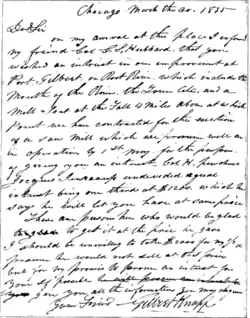 Chicago March the 20. 1835
Dear Sir
on my arrival at this place I
my friend Col G. S. Hubbard, that you
wished an interest in our improvement at
Port Gilbert, on Root River, which includes the
Mouth of the River, the Town Site, and a
Mill Seat at the 4 Miles above at which
Point we have contracted for the erection
of a Saw Mill which we presume will be
in operation by 1st May for the purpose
of giving you an interest Col H. purchased
of Jacques undivided equal
interest being one third at $1260, which he
says he will let you have at same price
There are persons here who would be glad
to get it at the price he gave
I should be unwilling to take $2000 for my
presume he would not sell at this price
but for my promise to procure an interest for
Your Self
give you all the information
Your friend Gilbert Knapp